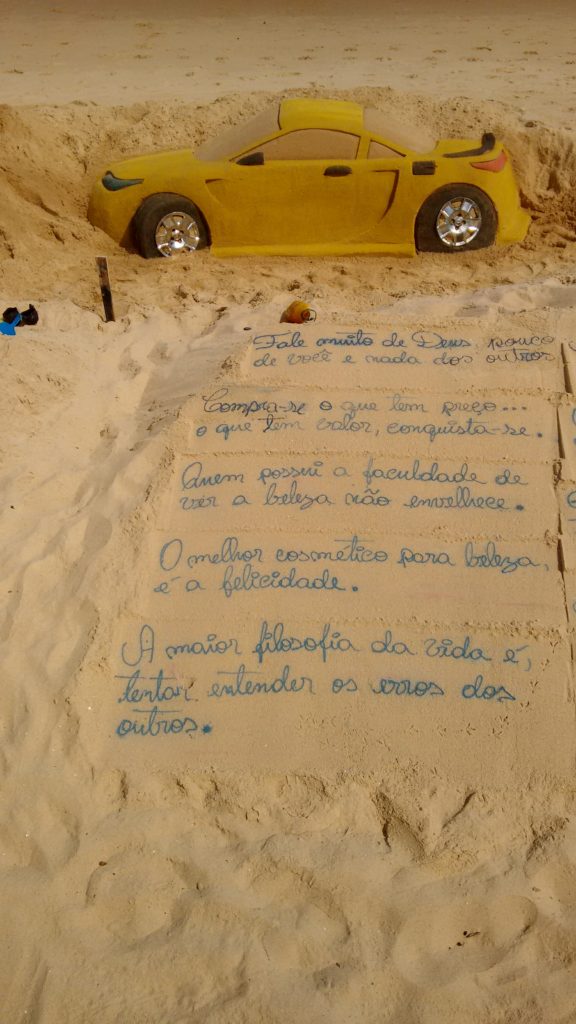 Fale muito de Deus, pouco
de você e nada dos outros
Compra-se o que tem preço...
o que tem valor, conquista-se.
Quem possui a faculdade de
ver a beleza não envelhece.
O melhor cosmético para beleza,
é a felicidade.
A maior filosofia da vida é,
tentar entender os erros dos
outros.